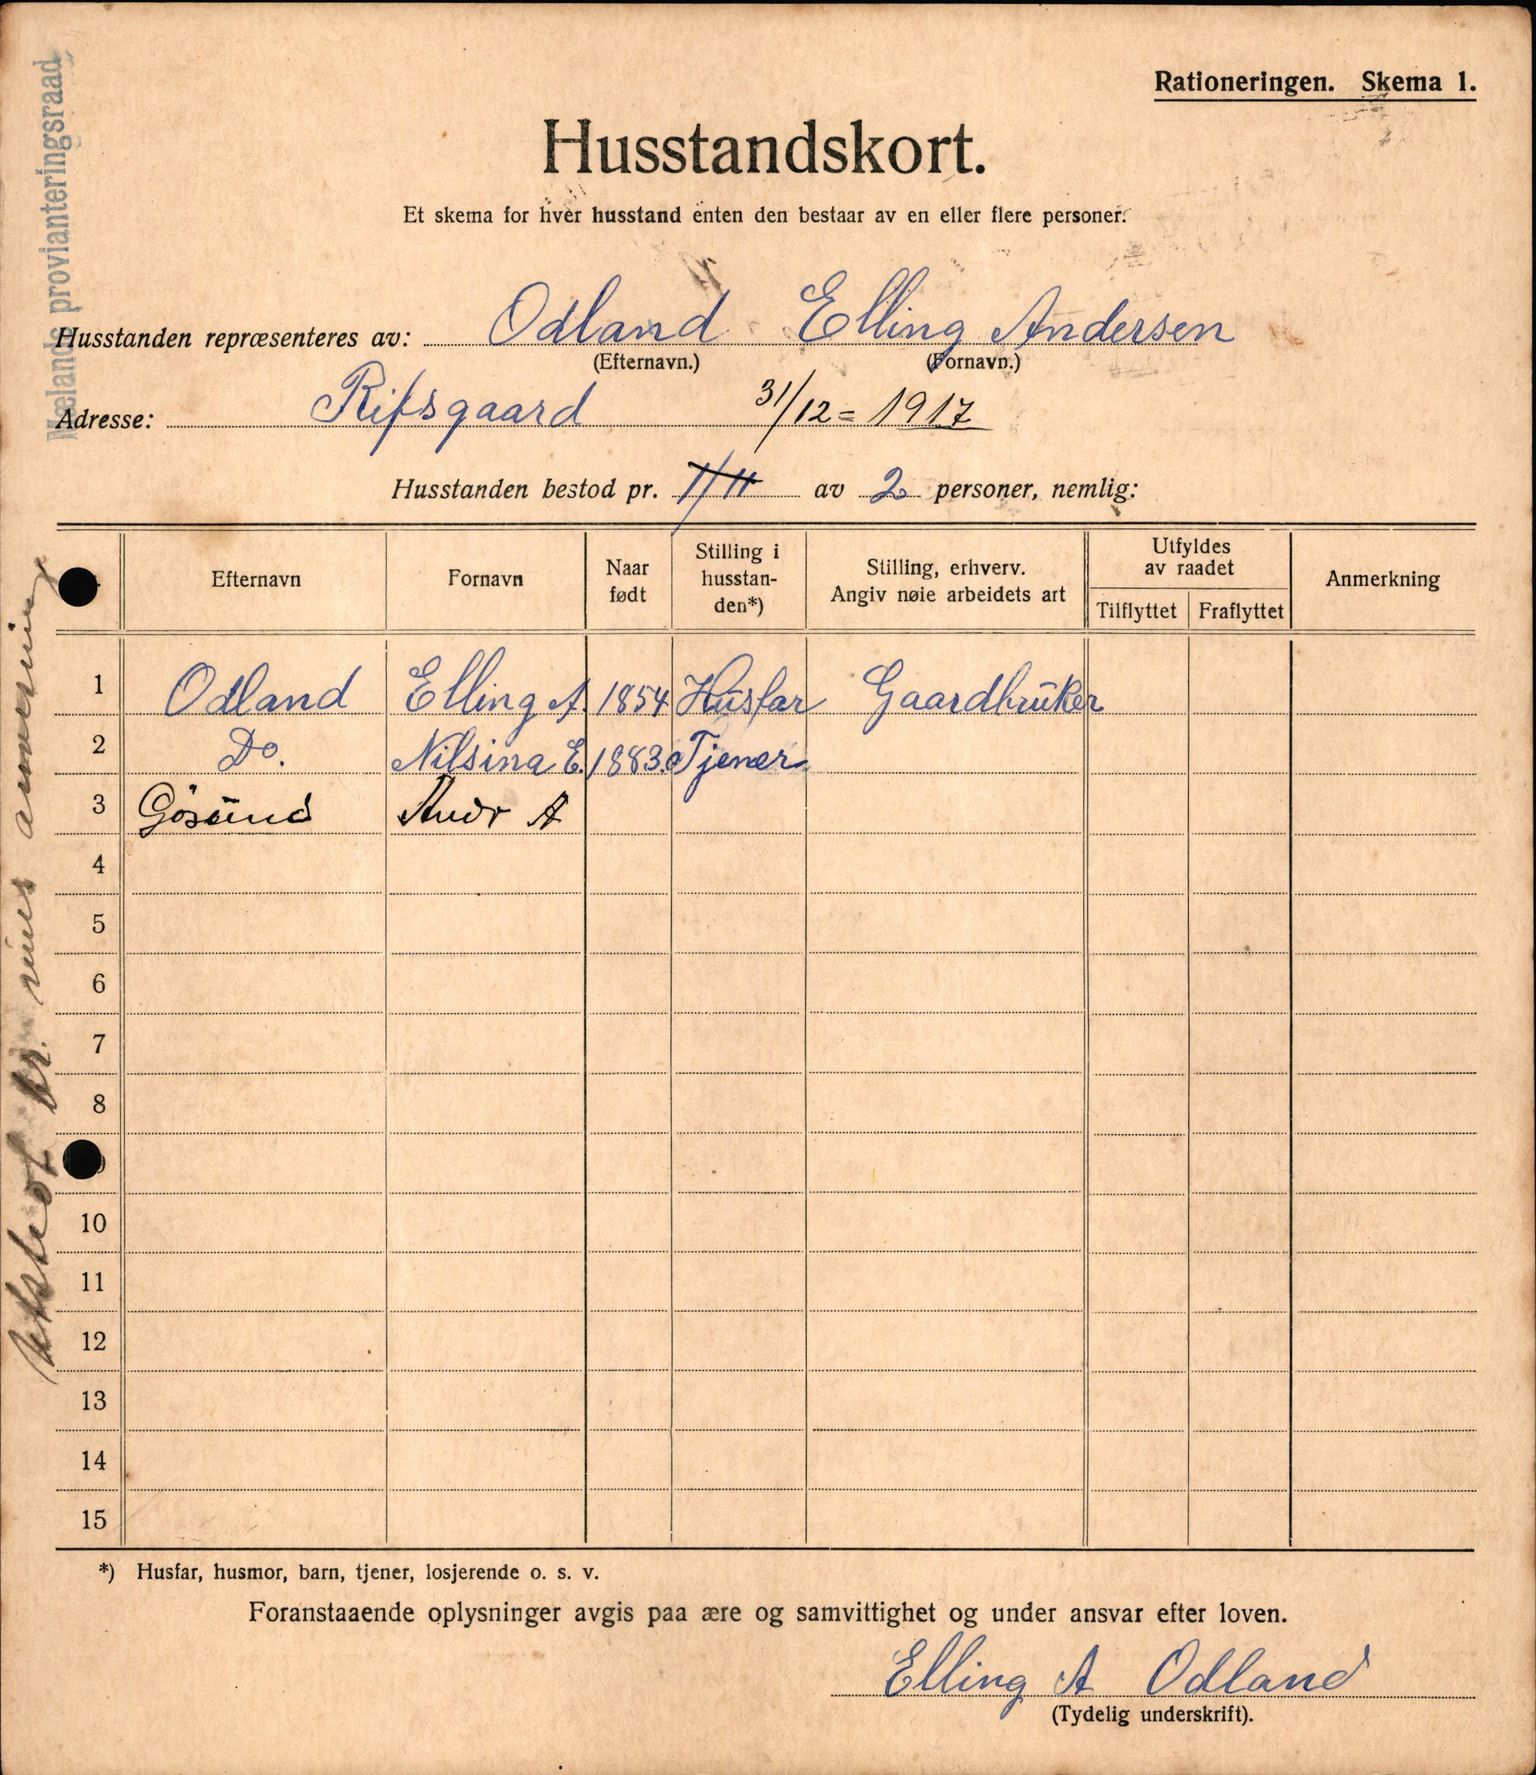 Rationeringen. Skema 1.
Husstandskort.
Et skema for hver husstand enten den bestaar av en eller flere personer.
Husstanden repræsenteres av: Odland Elling Andersen
(Efternavn.) (Fornavn.)
Adresse: Rifsgaard 31/12 = 1917
Husstanden bestod pr. 1/11 av 2 personer, nemlig:
Efternavn Fornavn Naar født Stilling i husstan-den*) Stilling, erhverv. Angiv nøie arbeidets art Utfyldes av raadet Tilflyttet Fraflyttet Anmerkning
1 Odland Elling A. 1854 Husfar Gaardbruker
2 Do. Nilsina E. 1883. Tjener
3 Gösund Andr A
4
5
6
7
8
10
11
12
13
14
15
*) Husfar, husmor, barn, tjener, losjerende o. s. v.
Foranstaaende oplysninger avgis paa ære og samvittighet og under ansvar efter loven.
Elling A Odland
(Tydelig underskrift).
provianteringsraad